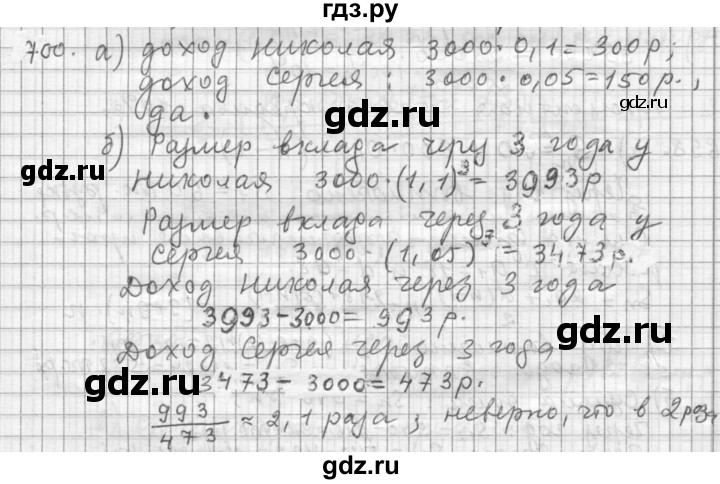 гдз.ру
700. а) доход Николая 3000·0,1=300р;
доход Сергея: 3000·0,05=150р.,
gdz.ru
gdz.ru
да.
gdz.ru
б) Размер вклада черу 3 года у
gdz.ru
Николая 3000·(1,1)³=3993р
Размер вклада через 3 года у
gdz.ru
Сергея 3000·(1,05)³=3473р.
gdz.ru
Доход Николая через 3 года
3993-3000=993р.
gdz.ru
Доход Сергея через 3 года
gdz.ru
3473-3000=473р.
993/473≈2,1 раза; неверно, что в 2 раза
gdz.ru
gdz.ru